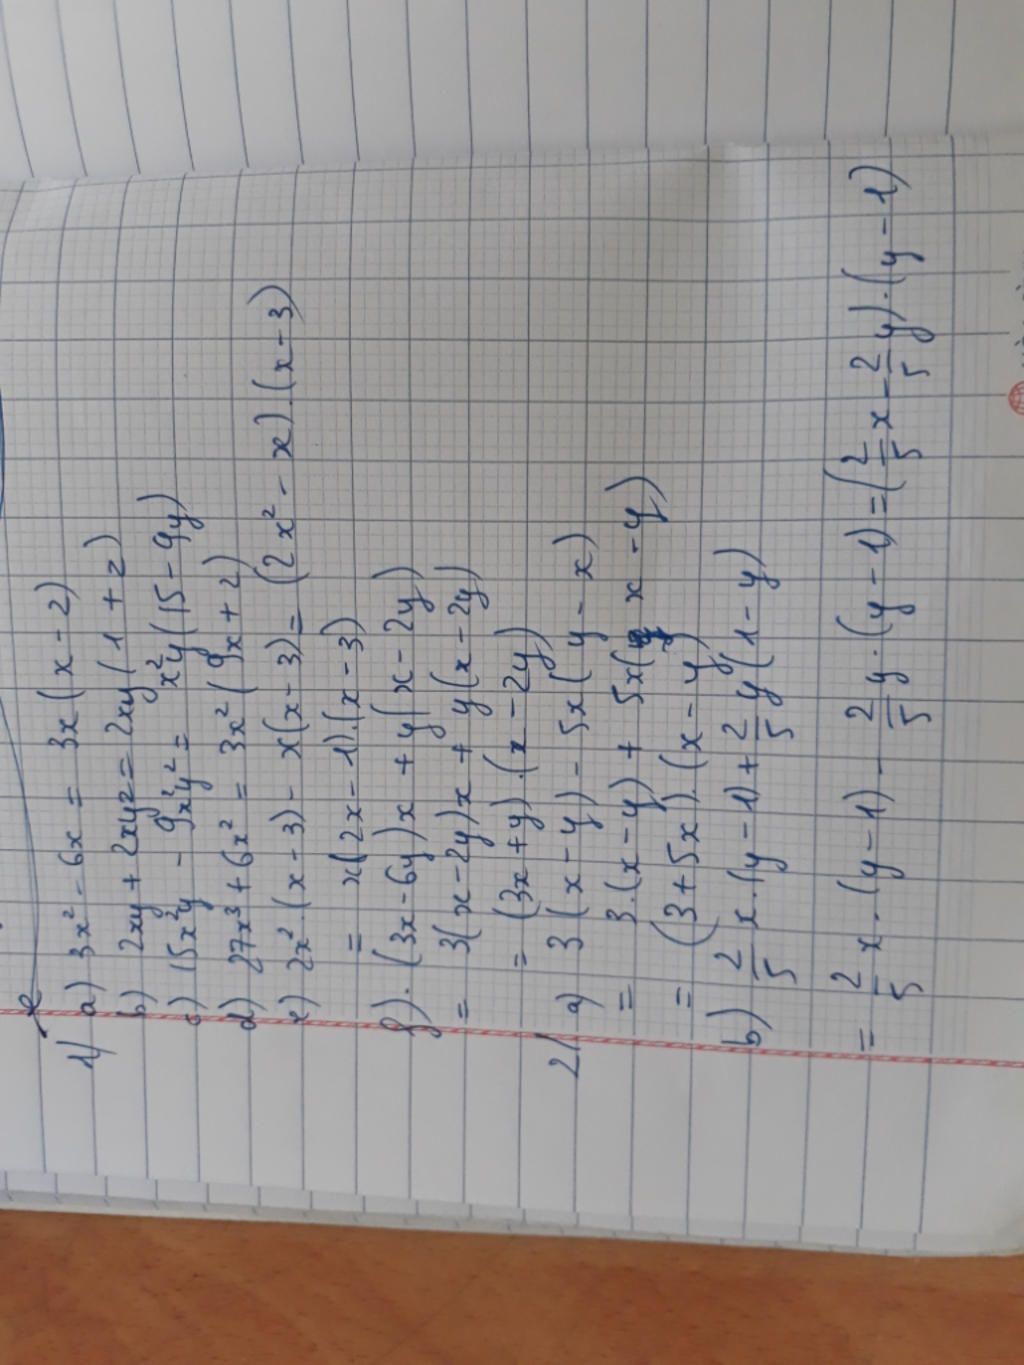 1)
a) 3x² - 6x = 3x(x - 2)
b) 2xy + 2xyz = 2xy(1 + z)
c) 15x²y - 9x²y² = x²y(15 - 9y)
d) 27x³ + 6x² = 3x²(9x + 2)
e) 2x².(x - 3) - x(x - 3) = (2x² - x).(x - 3)
= x(2x - 1).(x - 3)
f). (3x - 6y)x + y(x - 2y)
= 3(x - 2y)x + y(x - 2y)
= (3x + y).(x - 2y)
2)
a) 3(x - y) - 5x(y - x)
= 3.(x - y) + 5x(x - y)
= (3 + 5x).(x - y)
b) 2/5 x.(y - 1) + 2/5 y(1 - y)
= 2/5 x.(y - 1) - 2/5 y.(y - 1) = (2/5 x - 2/5 y).(y - 1)